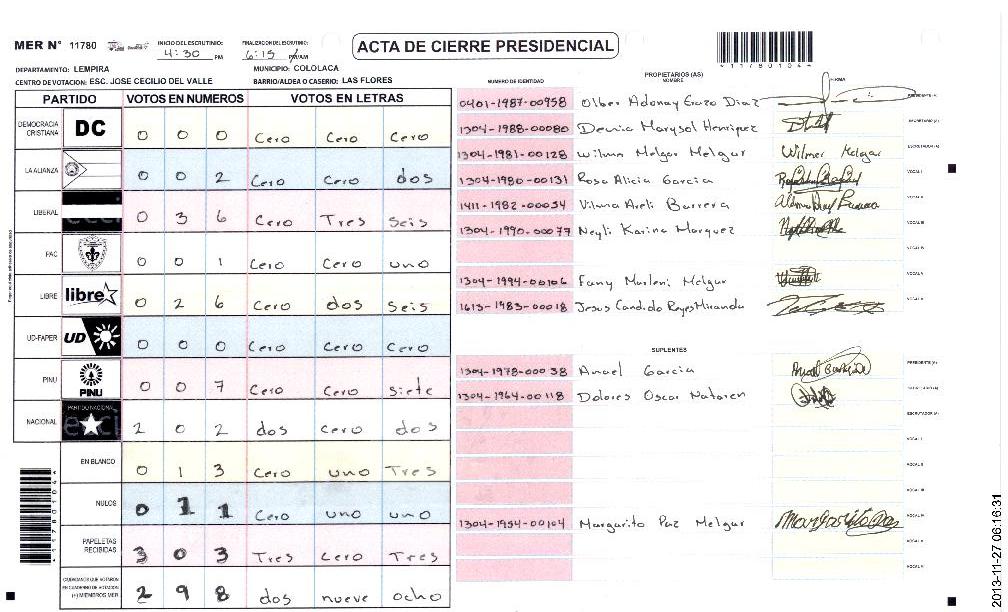 MER N° 11780 INICIO DEL ESCRUTINIO: 4:30 PM FINALIZACION DEL ESCRUTINIO: 6:15 PM/AM ACTA DE CIERRE PRESIDENCIAL
DEPARTAMENTO: LEMPIRA MUNICIPIO: COLOLACA
CENTRO DE VOTACION: ESC. JOSE CECILIO DEL VALLE BARRIO/ALDEA O CASERIO: LAS FLORES
PARTIDO VOTOS EN NUMEROS VOTOS EN LETRAS
DEMOCRACIA CRISTIANA DC 0 0 0 Cero Cero Cero
LA ALIANZA 0 0 2 Cero Cero dos
LIBERAL 0 3 6 Cero Tres Seis
PAC 0 0 1 Cero Cero uno
LIBRE libre 0 2 6 Cero dos Seis
UD-FAPER UD 0 0 0 Cero Cero Cero
PINU PINU 0 0 7 Cero Cero siete
NACIONAL PARTIDO NACIONAL 2 0 2 dos Cero dos
EN BLANCO 0 1 3 Cero uno Tres
NULOS 0 1 1 Cero uno uno
PAPELETAS RECIBIDAS 3 0 3 Tres Cero Tres
CIUDADANOS QUE VOTARON EN CUADERNO DE VOTACION (+) MIEMBROS MER 2 9 8 dos nueve ocho
*11780104*
PROPIETARIOS (AS)
NUMERO DE IDENTIDAD NOMBRE FIRMA
0401-1987-00958 Olber Adonay Erazo Diaz PRESIDENTE (A)
1304-1988-00080 Denia Marysol Henriquez SECRETARIO (A)
1304-1981-00128 Wilmer Melgar Melgar Wilmer Melgar ESCRUTADOR (A)
1304-1980-00131 Rosa Alicia Garcia VOCAL I
1411-1982-00054 Vilma Areli Barrera VOCAL II
1304-1990-00077 Neyli Karina Marquez VOCAL III
VOCAL IV
1304-1994-00106 Fany Marleni Melgar VOCAL V
1613-1983-00018 Jesus Candido Reyes Miranda VOCAL VI
SUPLENTES
1304-1978-00038 Anael Garcia PRESIDENTE (A)
1304-1964-00118 Dolores Oscar Nataren SECRETARIO (A)
ESCRUTADOR (A)
VOCAL I
VOCAL II
VOCAL III
1304-1954-00104 Margarito Paz Melgar VOCAL IV
VOCAL V
VOCAL VI
2013-11-27 06:16:31